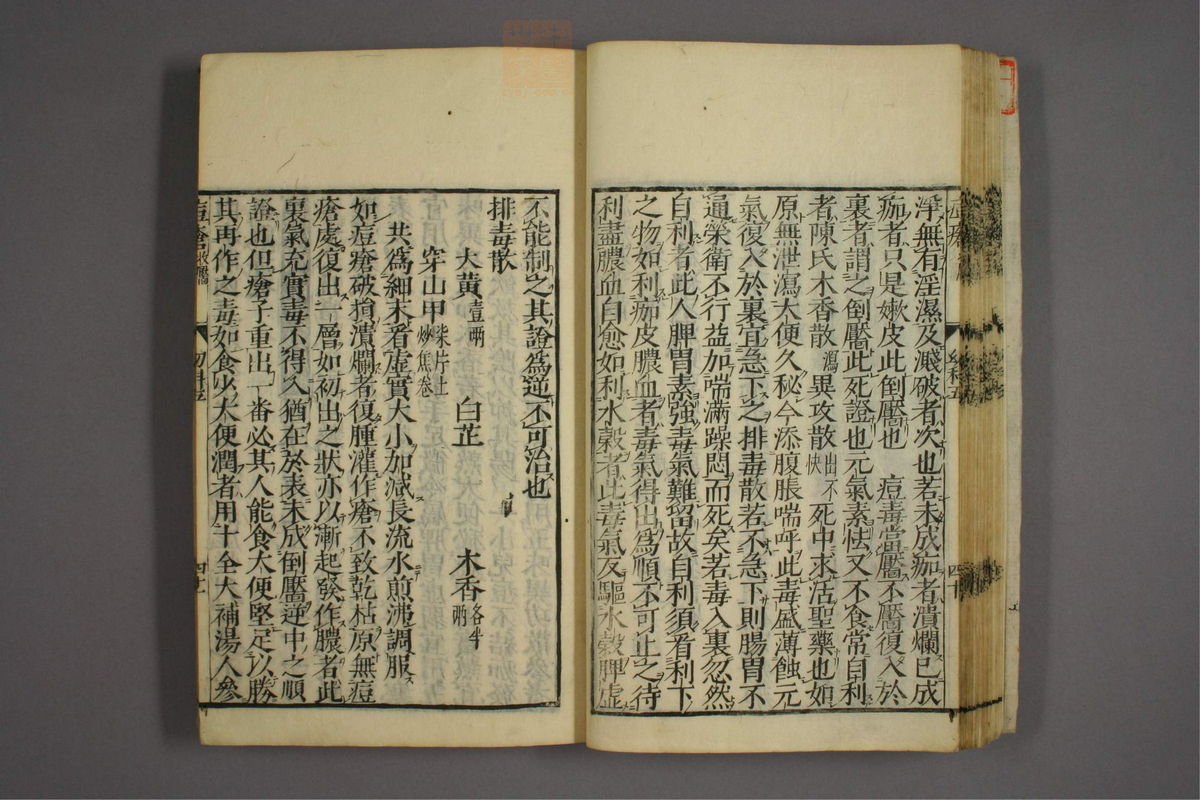 淨無有淫濕及濺破者次也若未成痂者潰爛已成
痂者只是嫩皮此倒靨也　痘毒當靨不靨復入於
裏者謂之倒靨此死證也元氣素怯又不食常自利
者陳氏木香散瀉異攻散出不快死中求活聖藥也如
原無泄瀉大便久秘今添腹脹喘呼此毒盛薄蝕元
氣復入於裏宜急下之排毒散若不急下則腸胃不
通榮衛不行益加喘滿躁悶而死矣若毒入裏忽然
自利者此人脾胃素強毒氣難留故自利須看利下
之物如利痂皮膿血者毒氣得出為順不可止之待
利盡膿血自愈如利水穀者此毒氣反驅水穀脾虛
不能制之其證為逆不可治也
排毒散
大黃壹兩　白芷　木香各半兩
穿山甲柒片土炒焦卷
共為細末看虛實大小加減長流水煎沸調服
如痘瘡破損潰爛者復腫灌作瘡不致乾枯原無痘
瘡處復出一層如初出之狀亦以漸起發作膿者此
裏氣充實毒不得入猶在於表未成倒靨逆中之順
證也但瘡子重出一番必其人能食大便堅足以勝
其再作之毒如食少大便潤者用十全大補湯人參
痘瘡
四十